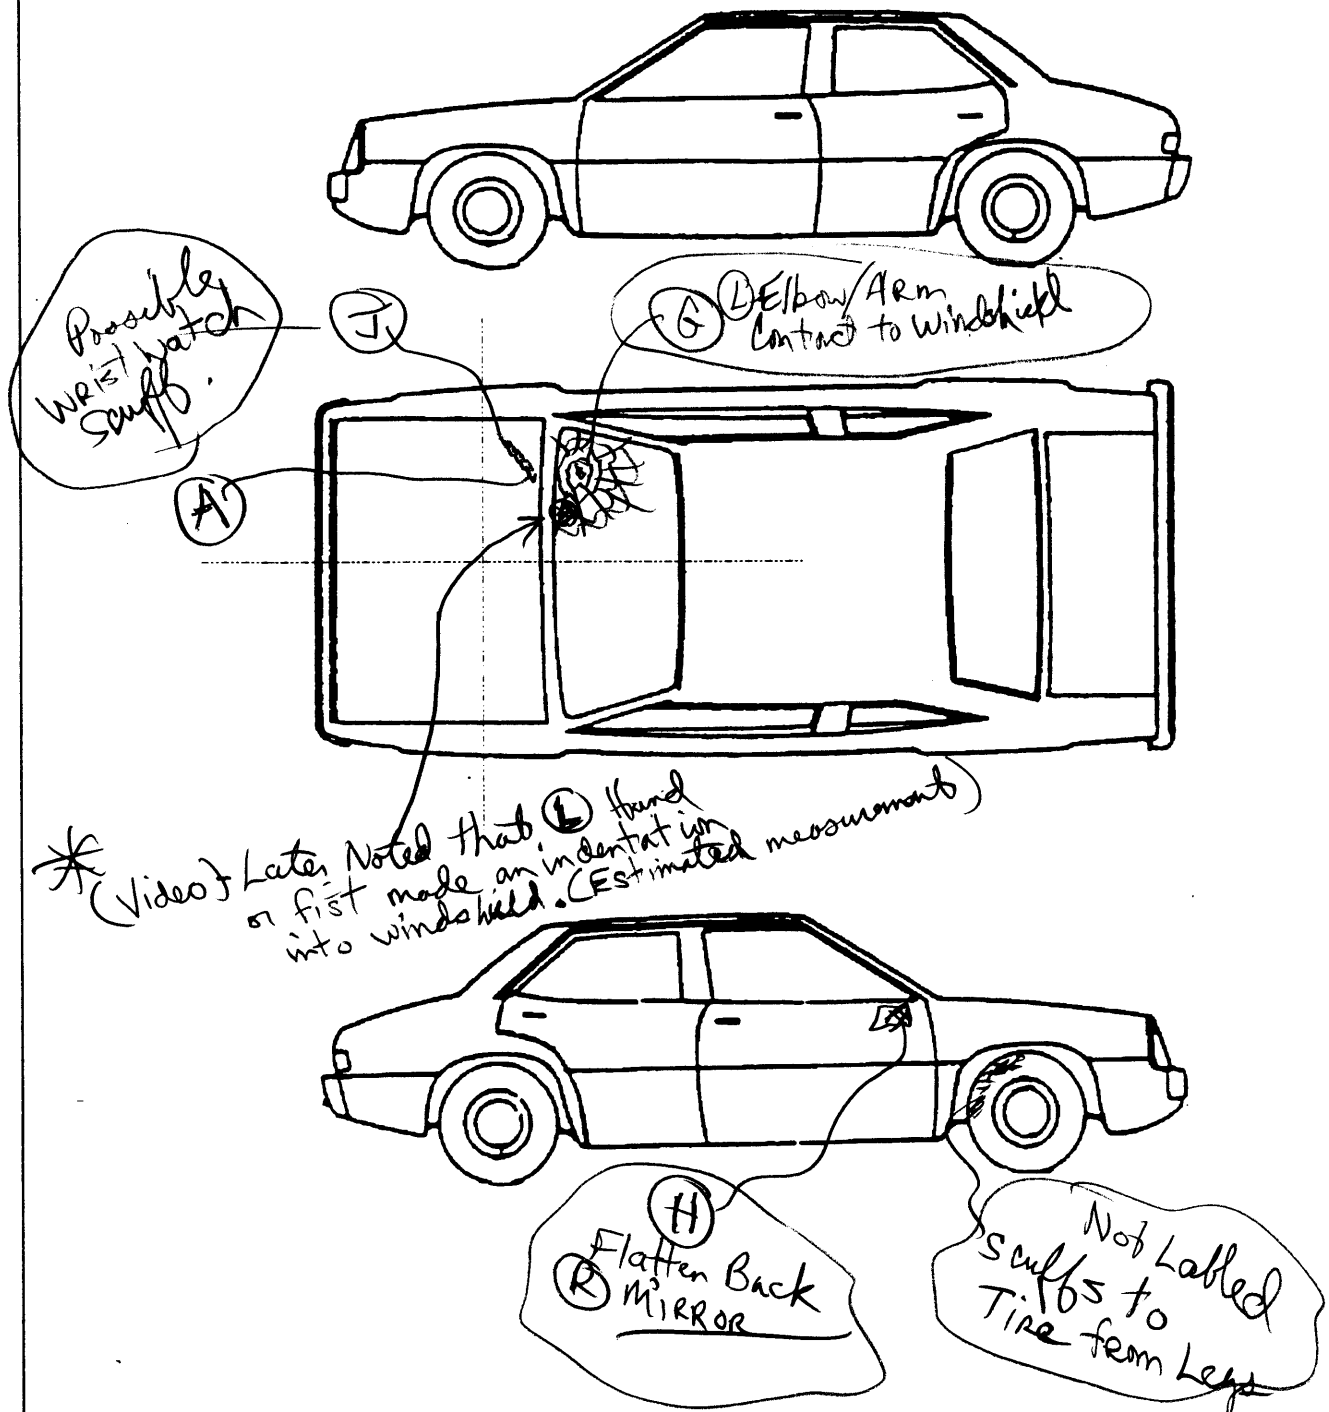 Possible
WRIST Watch
Scuff.
J
G
L Elbow/ARM
Contact to Windshield
A
* (Video) Later Noted that L Hand
or fist made an indentation
into windshield. (Estimated measurement)
H
Flatten Back
R MIRROR
Not Labled
Scuffs to
Tire from Legs